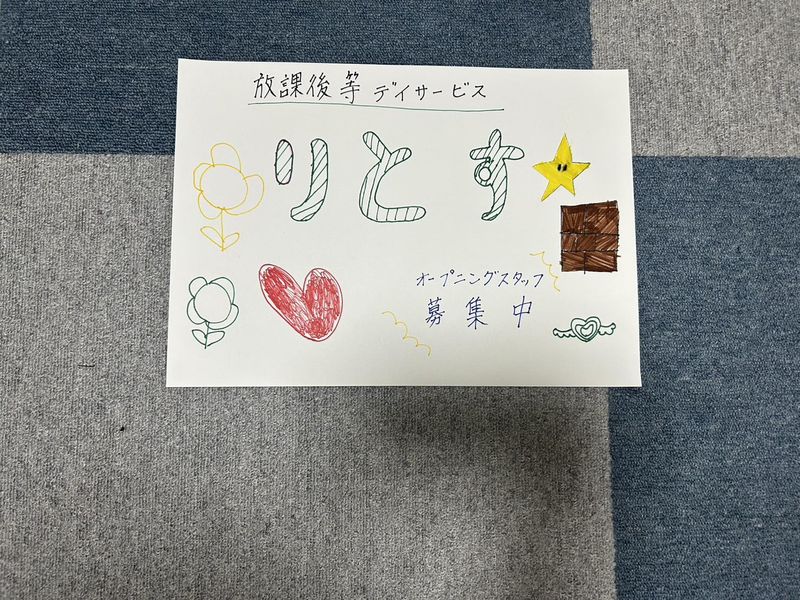 放課後等デイサービス
りとす
オープニングスタッフ
募集中